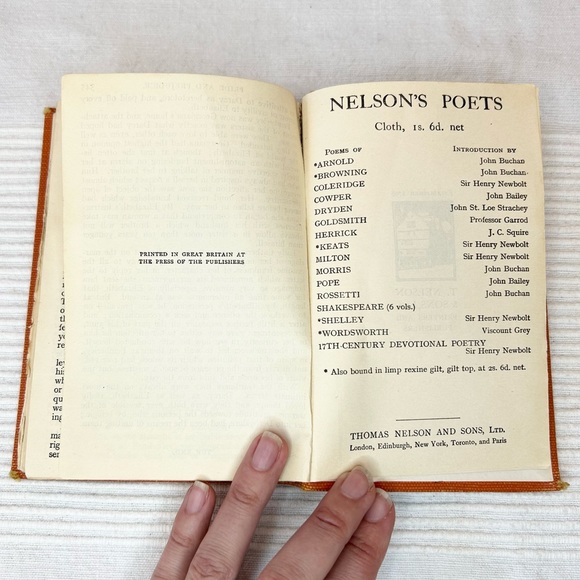 PRINTED IN GREAT BRITAIN AT
THE PRESS OF THE PUBLISHERS
NELSON'S POETS
Cloth, 1s. 6d. net
POEMS OF INTRODUCTION BY
*ARNOLD John Buchan
*BROWNING John Buchan
COLERIDGE Sir Henry Newbolt
COWPER John Bailey
DRYDEN John St. Loe Strachey
GOLDSMITH Professor Garrod
HERRICK J. C. Squire
*KEATS Sir Henry Newbolt
MILTON Sir Henry Newbolt
MORRIS John Buchan
POPE John Bailey
ROSSETTI John Buchan
SHAKESPEARE (6 vols.)
*SHELLEY Sir Henry Newbolt
*WORDSWORTH Viscount Grey
17TH-CENTURY DEVOTIONAL POETRY
Sir Henry Newbolt
* Also bound in limp rexine gilt, gilt top, at 2s. 6d. net.
THOMAS NELSON AND SONS, LTD.
London, Edinburgh, New York, Toronto, and Paris